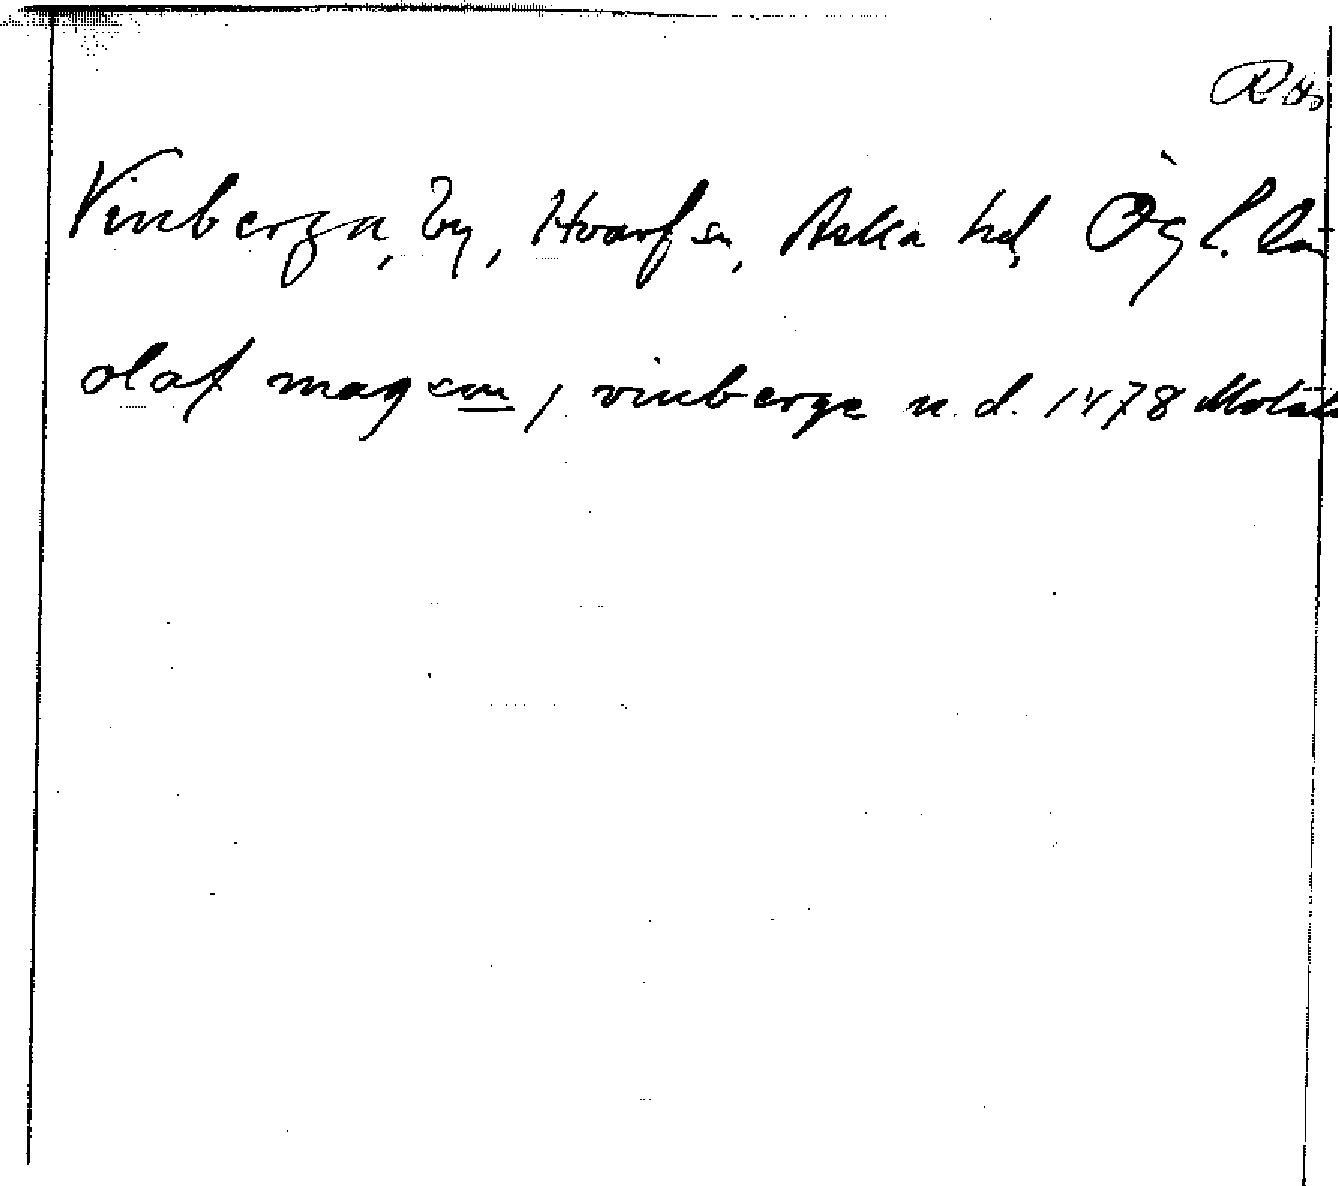 Vinberga, by, Hvarf sn, Aska hd, Ögl. län
olaf magxon j vinberge n. d. 1478 Motala